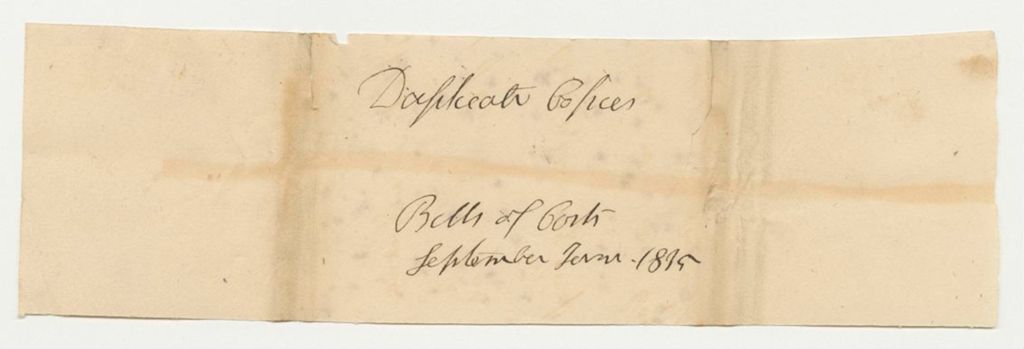 Duplicate Copies
Bills of Costs
September Term. 1835